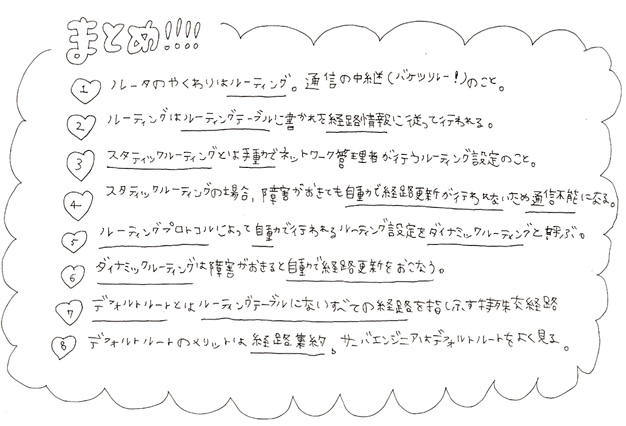 まとめ!!!!
1 ルータのやくわりはルーティング。通信の中継(バケツリレー!)のこと。
2 ルーティングはルーティングテーブルに書かれた経路情報に従って行われる。
3 スタティックルーティングとは手動でネットワーク管理者が行うルーティング設定のこと。
4 スタティックルーティングの場合、障害がおきても自動で経路更新が行われないため通信不能になる。
5 ルーティングプロトコルによって自動で行われるルーティング設定をダイナミックルーティングと呼ぶ。
6 ダイナミックルーティングは障害がおきると自動で経路更新をおこなう。
7 デフォルトルートとはルーティングテーブルにないすべての経路を指し示す特殊な経路
8 デフォルトルートのメリットは経路集約。サーバエンジニアはデフォルトルートをよく見る。